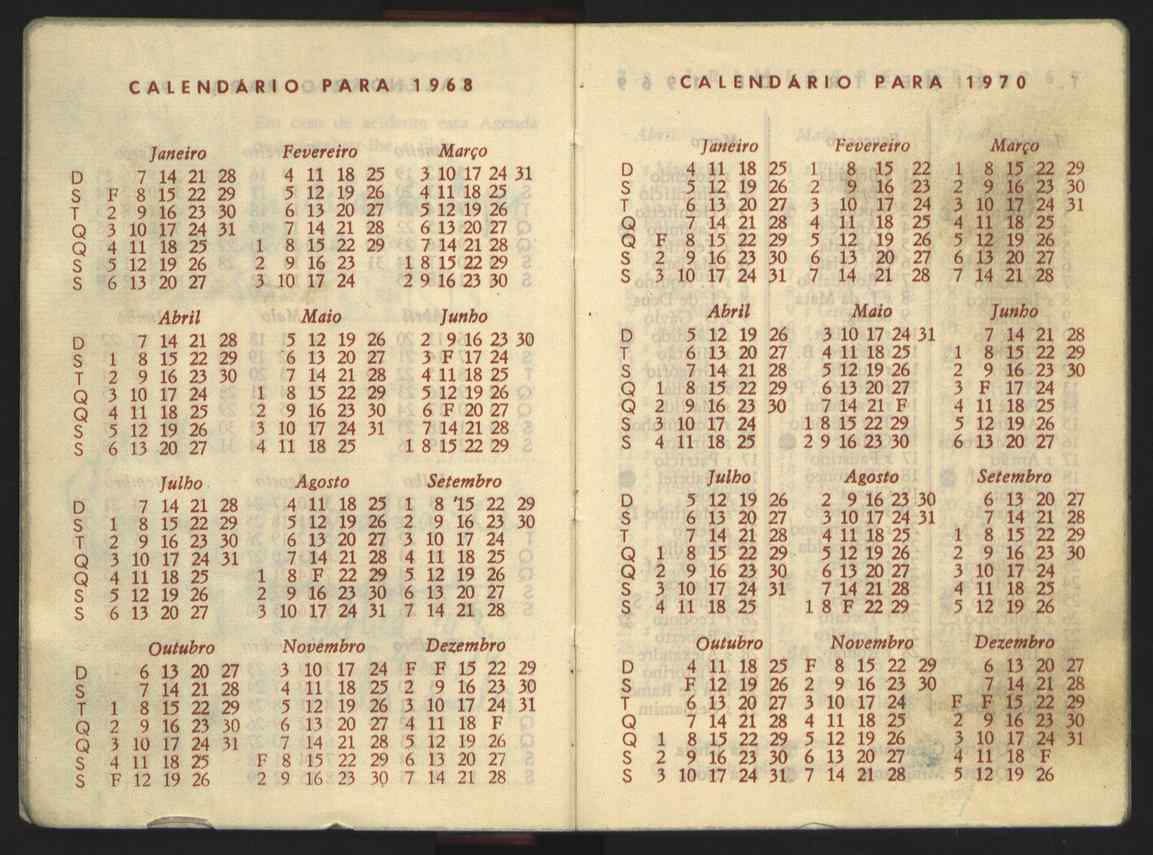 CALENDÁRIO PARA 1968
Janeiro Fevereiro Março
D 7 14 21 28 4 11 18 25 3 10 17 24 31
S F 8 15 22 29 5 12 19 26 4 11 18 25
T 2 9 16 23 30 6 13 20 27 5 12 19 26
Q 3 10 17 24 31 7 14 21 28 6 13 20 27
Q 4 11 18 25 1 8 15 22 29 7 14 21 28
S 5 12 19 26 2 9 16 23 1 8 15 22 29
S 6 13 20 27 3 10 17 24 2 9 16 23 30
Abril Maio Junho
D 7 14 21 28 5 12 19 26 2 9 16 23 30
S 1 8 15 22 29 6 13 20 27 3 F 17 24
T 2 9 16 23 30 7 14 21 28 4 11 18 25
Q 3 10 17 24 1 8 15 22 29 5 12 19 26
Q 4 11 18 25 2 9 16 23 30 6 F 20 27
S 5 12 19 26 3 10 17 24 31 7 14 21 28
S 6 13 20 27 4 11 18 25 1 8 15 22 29
Julho Agosto Setembro
D 7 14 21 28 4 11 18 25 1 8 15 22 29
S 1 8 15 22 29 5 12 19 26 2 9 16 23 30
T 2 9 16 23 30 6 13 20 27 3 10 17 24
Q 3 10 17 24 31 7 14 21 28 4 11 18 25
Q 4 11 18 25 1 8 F 22 29 5 12 19 26
S 5 12 19 26 2 9 16 23 30 6 13 20 27
S 6 13 20 27 3 10 17 24 31 7 14 21 28
Outubro Novembro Dezembro
D 6 13 20 27 3 10 17 24 F F 15 22 29
S 7 14 21 28 4 11 18 25 2 9 16 23 30
T 1 8 15 22 29 5 12 19 26 3 10 17 24 31
Q 2 9 16 23 30 6 13 20 27 4 11 18 F
Q 3 10 17 24 31 7 14 21 28 5 12 19 26
S 4 11 18 25 F 8 15 22 29 6 13 20 27
S F 12 19 26 2 9 16 23 30 7 14 21 28
CALENDÁRIO PARA 1970
Janeiro Fevereiro Março
D 4 11 18 25 8 15 22 1 8 15 22 29
S 5 12 19 26 2 9 16 23 2 9 16 23 30
T 6 13 20 27 3 10 17 24 3 10 17 24 31
Q 7 14 21 28 4 11 18 25 4 11 18 25
Q F 8 15 22 29 5 12 19 26 5 12 19 26
S 2 9 16 23 30 6 13 20 27 6 13 20 27
S 3 10 17 24 31 7 14 21 28 7 14 21 28
Abril Maio Junho
D 5 12 19 26 3 10 17 24 31 7 14 21 28
T 6 13 20 27 4 11 18 25 1 8 15 22 29
S 7 14 21 28 5 12 19 26 2 9 16 23 30
Q 1 8 15 22 29 6 13 20 27 3 F 17 24
Q 2 9 16 23 30 7 14 21 F 4 11 18 25
S 3 10 17 24 1 8 15 22 29 5 12 19 26
S 4 11 18 25 2 9 16 23 30 6 13 20 27
Julho Agosto Setembro
D 5 12 19 26 2 9 16 23 30 6 13 20 27
S 6 13 20 27 3 10 17 24 31 7 14 21 28
T 7 14 21 28 4 11 18 25 1 8 15 22 29
Q 1 8 15 22 29 5 12 19 26 2 9 16 23 30
Q 2 9 16 23 30 6 13 20 27 3 10 17 24
S 3 10 17 24 31 7 14 21 28 4 11 18 25
S 4 11 18 25 1 8 F 22 29 5 12 19 26
Outubro Novembro Dezembro
D 4 11 18 25 F 8 15 22 29 6 13 20 27
S F 12 19 26 2 9 16 23 30 7 14 21 28
T 6 13 20 27 3 10 17 24 F F 15 22 29
Q 7 14 21 28 4 11 18 25 2 9 16 23 30
Q 1 8 15 22 29 5 12 19 26 3 10 17 24 31
S 2 9 16 23 30 6 13 20 27 4 11 18 F
S 3 10 17 24 31 7 14 21 28 5 12 19 26